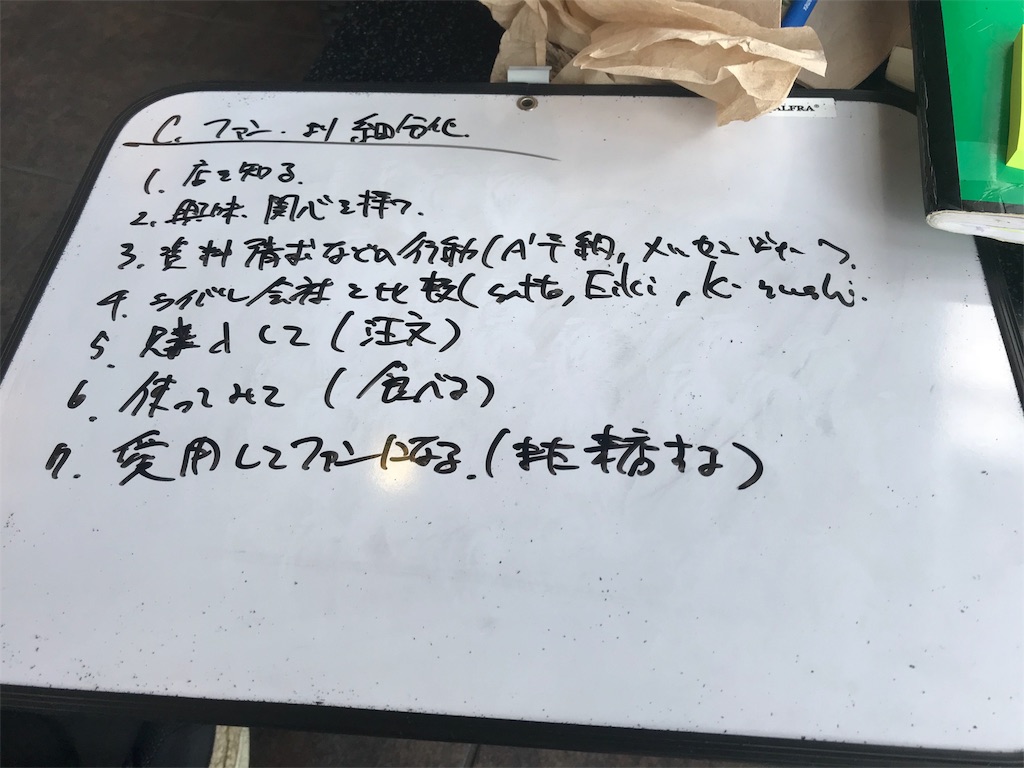 ALFRA®
C. ファン・より細分化.
1. 店を知る.
2. 興味、関心を持つ.
3. 資料請求などの行動(
4. ライバル会社と比較( Eiki, K-sushi.
5. 購入して(注文)
6. 使ってみて (食べる)
7. 愛用してファンになる.(また来店する)